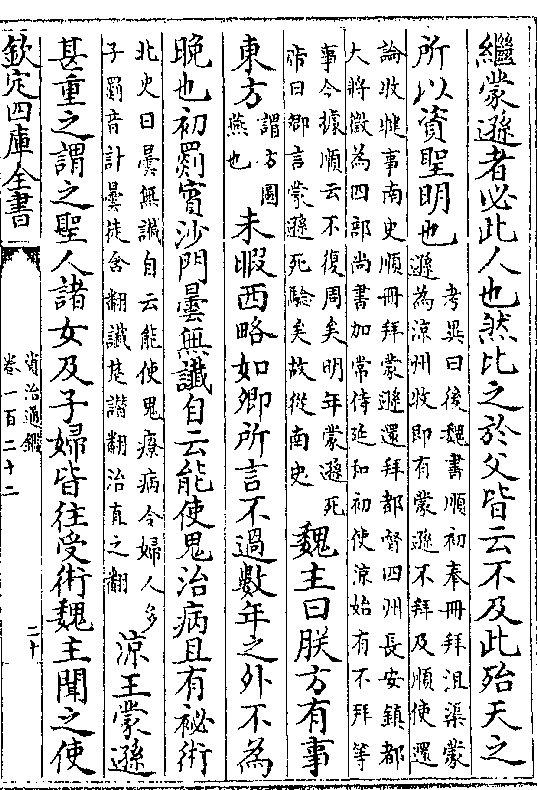 繼蒙遜者必此人也然比之於父皆云不及此殆天之
所以資聖明也
考異曰後魏書順初奉冊拜沮渠蒙
遜為涼州牧即有蒙遜不拜及順使還
論收犍事南史順冊拜蒙遜還拜都督四州長安鎮都
大將徵為四部尚書加常侍延和初使涼始有不拜等
事今據順云不復周矣明年蒙遜死
帝曰卿言蒙遜死驗矣故從南史
魏主曰朕方有事
東方
謂方圖
燕也
未暇西略如卿所言不過數年之外不為
晚也初罽賓沙門曇無讖自云能使鬼治病且有祕術
北史曰曇無讖自云能使鬼療病令婦人多
子罽音計曇徒含翻讖楚譖翻治直之翻
涼王蒙遜
甚重之謂之聖人諸女及子婦皆往受術魏主聞之使
欽定四庫全書
資治通鑑
卷一百二十二
二十